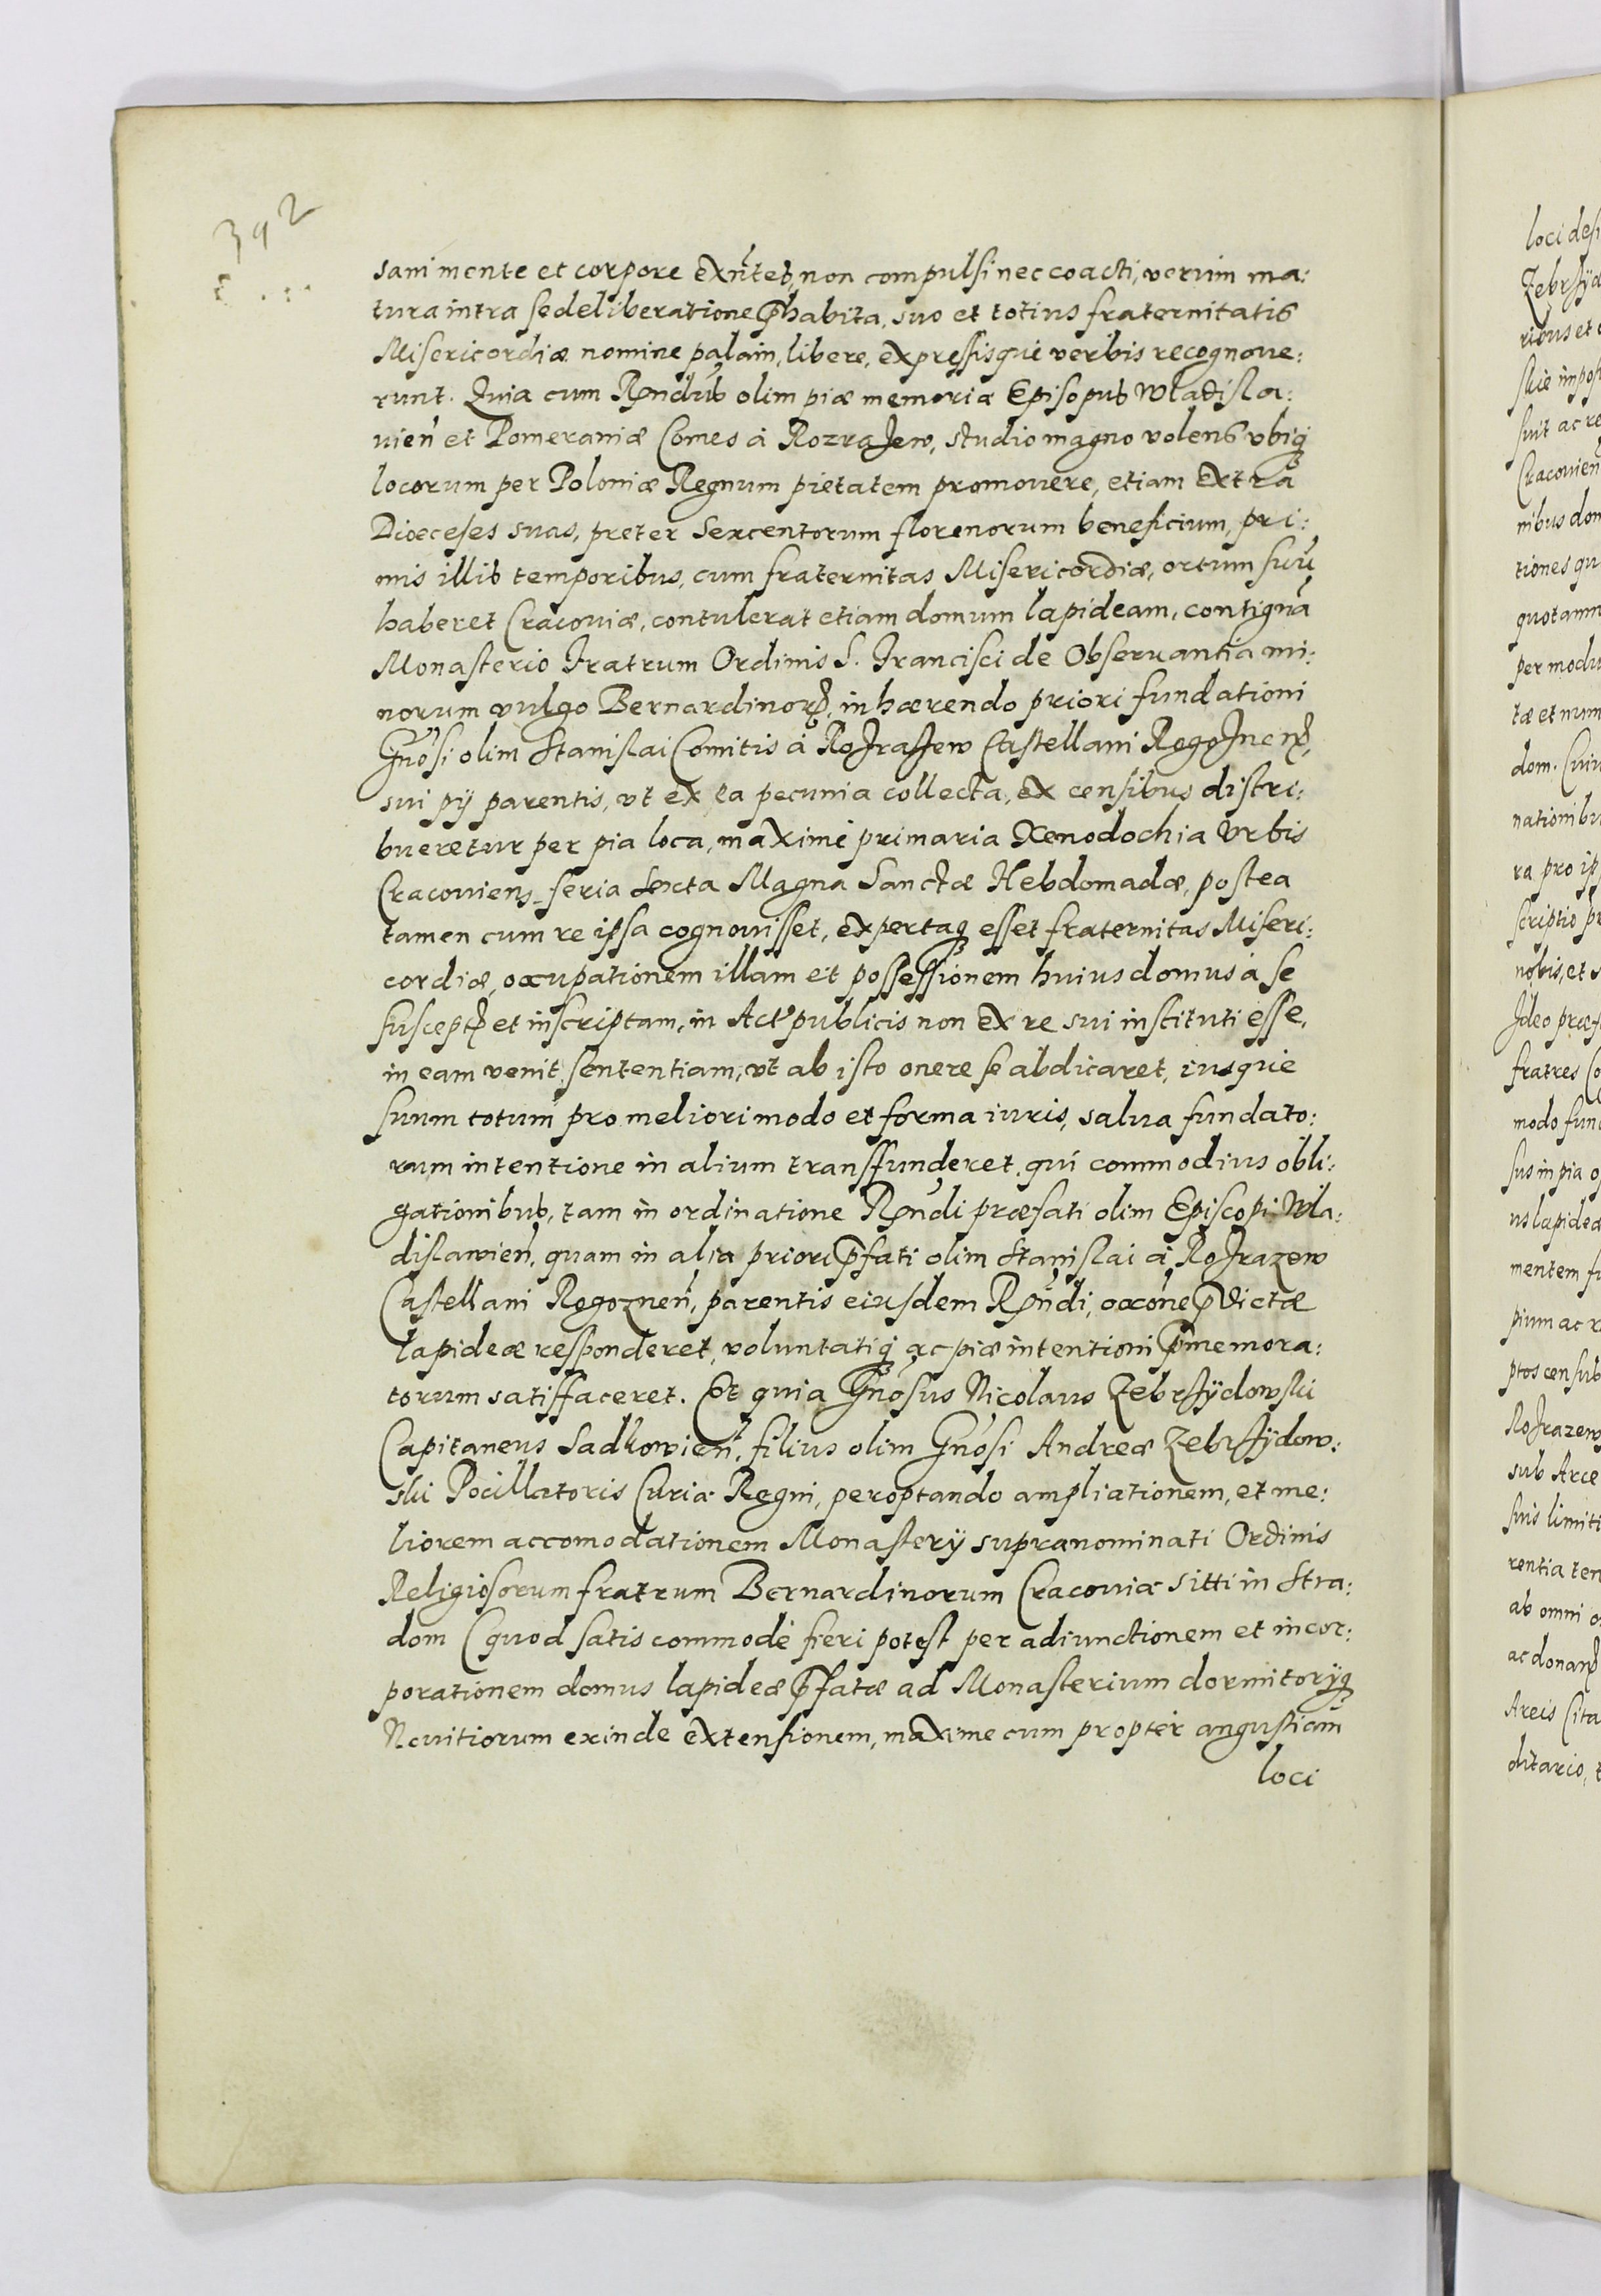 392
sani mente et corpore exñtes, non compulsi nec coacti, verum ma:
tura intra se deliberatione p̃habita, suo et totius fraternitatis
Misericordiæ nomine palam, libere, expressisque verbis recognoue:
runt. Quia cum Rñdus olim piæ memoriæ Episopus Wladisla:
uień et Pomeraniæ Comes à Rozrażew, studio magno volens vbiq̃
locorum per Poloniæ Regnum pietatem promouere, etiam extra
Dioeceses suas, preter Sexcentorum florenorum beneficium, pri:
mis illis temporibus, cum fraternitas Misericordiæ, ortum suũ
haberet Cracouiæ, contulerat etiam domum lapideam, contiguã
Monasterio Fratrum Ordinis S. Francisci de Obseruantia mi:
norum vulgo Bernardinorꝝ, inhærendo priori fundationi
Gñosi olim Stanislai Comitis à Rozrazew Castellani Rogoznenꝭ,
sui pij parentis, vt ex ea pecunia collecta, ex censibus distri:
bueretur per pia loca, maximè primaria Xenodochia Vrbis
Cracouiens. feria Sexta Magna Sanctæ Hebdomadæ, postea
tamen cum re ipsa cognouisset, expertaq̃ esset fraternitas Miseri:
cordiæ, occupationem illam et possessionem huius domus à se
susceptꝭ et inscriptam, in Actis publicis non ex re sui instituti esse,
in eam venit sententiam, vt ab isto onere se abdicaret, iusque
suum totum pro meliori modo et forma iuris, salua fundato:
rum intentione in alium transfunderet, qui commodius obli:
gationibus, tam in ordinatione Rñdi præfati olim Episcopi Wla:
dislawień, quam in alia priori p̃fati olim Stanislai à Rozrazew
Castellani Rogozneń, parentis eiusdem Rñdi, occóne p̃dictæ
lapideæ responderet, voluntatiq̃ ac piæ intentioni p̃memora:
torum satisfaceret. Et quia Gñosus Nicolaus Zebrzÿdowski
Capitaneus Sadkowień, filius olim Gñosi Andreæ Zebrzÿdow:
ski Pocillatoris Curiæ Regni, peroptando ampliationem, et me:
liorem accomodationem Monasterij supranominati Ordinis
Religiosorum fratrum Bernardinorum Cracouiæ sitti in Stra:
dom (quod satis commodè fieri potest per adiunctionem et incor:
porationem domus lapideæ p̃fatæ ad Monasterium dormitorijq̃
Nouitiorum exinde extensionem, maxime cum propter angustiam
loci